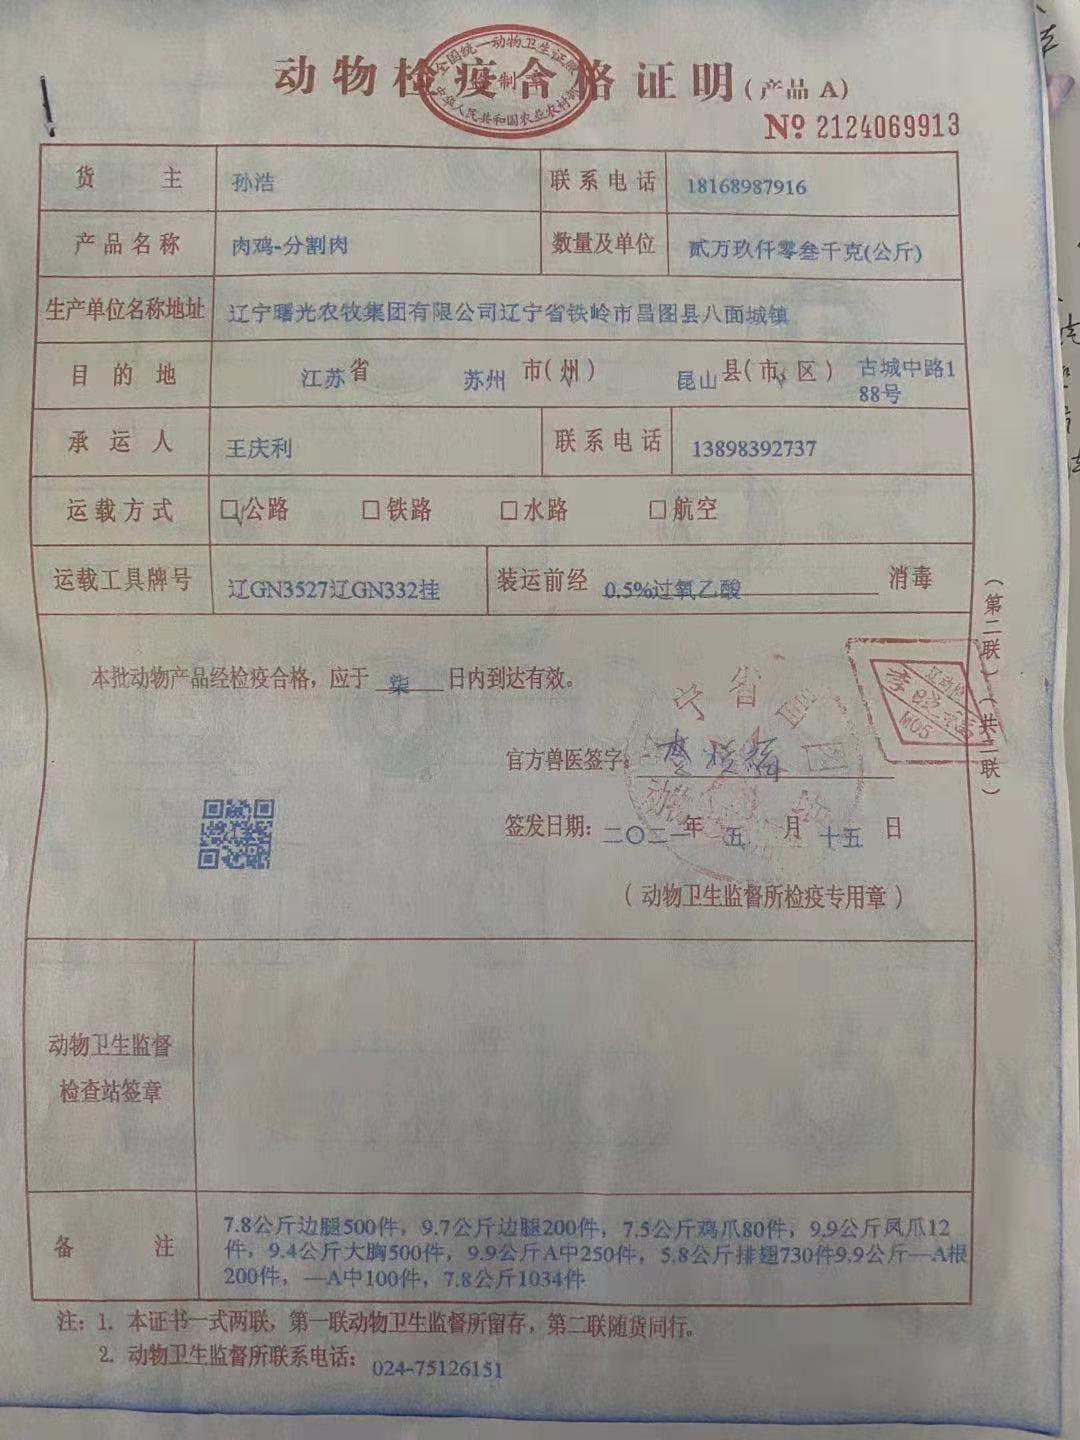 动物检疫合格证明(产品 A)
全国统一动物卫生证章
中华人民共和国农业农村部
№ 2124069913
货 主 孙浩 联系电话 18168987916
产品名称 肉鸡-分割肉 数量及单位 贰万玖仟零叁千克(公斤)
生产单位名称地址 辽宁曙光农牧集团有限公司辽宁省铁岭市昌图县八面城镇
目的地 江苏省 苏州 市(州) 昆山 县(市、区) 古城中路1
88号
承运人 王庆利 联系电话 13898392737
运载方式 ☑公路 □铁路 □水路 □航空
运载工具牌号 辽GN3527辽GN332挂 装运前经 0.5%过氧乙酸 消毒
本批动物产品经检疫合格，应于 柒 日内到达有效。
官方兽医签字:
签发日期: 二〇二一年 五 月 十五 日
(动物卫生监督所检疫专用章)
(第二联)(共二联)
动物卫生监督
检查站签章
备 注
7.8公斤边腿500件，9.7公斤边腿200件，7.5公斤鸡爪80件，9.9公斤凤爪12
件，9.4公斤大胸500件，9.9公斤A中250件，5.8公斤排翅730件9.9公斤—A根
200件，—A中100件，7.8公斤1034件
注: 1. 本证书一式两联，第一联动物卫生监督所留存，第二联随货同行。
2. 动物卫生监督所联系电话: 024-75126151